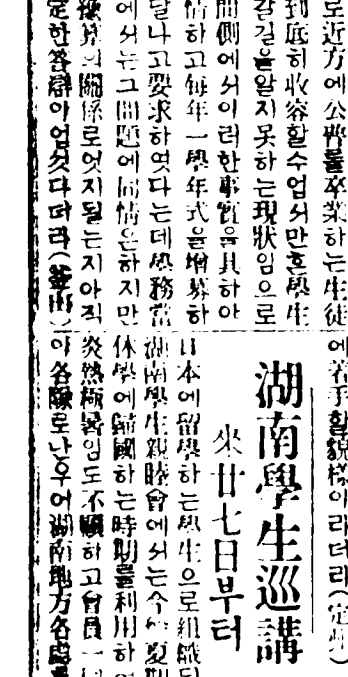 로近方에公普를卒業하는生徒
到底히收容할수업서만흔學生
갈길을알지못하는現狀임으로
間側에서이러한事實을具하야
情하고每年一學年式을增募하
달나고要求하엿다는데學務當
에서는그問題에同情은하지만
算의關係로엇지될는지아직
定한答辯이업섯다더라(釜山)
에着手할貌樣이라더라(定州)
湖南學生巡講
來廿七日부터
日本에留學하는學生으로組織되
湖南學生親睦會에서는今 夏期
休學에歸國하는時期를利用하
炎熱極暑임도不顧하고會員一
이各隊로난우어湖南地方各處